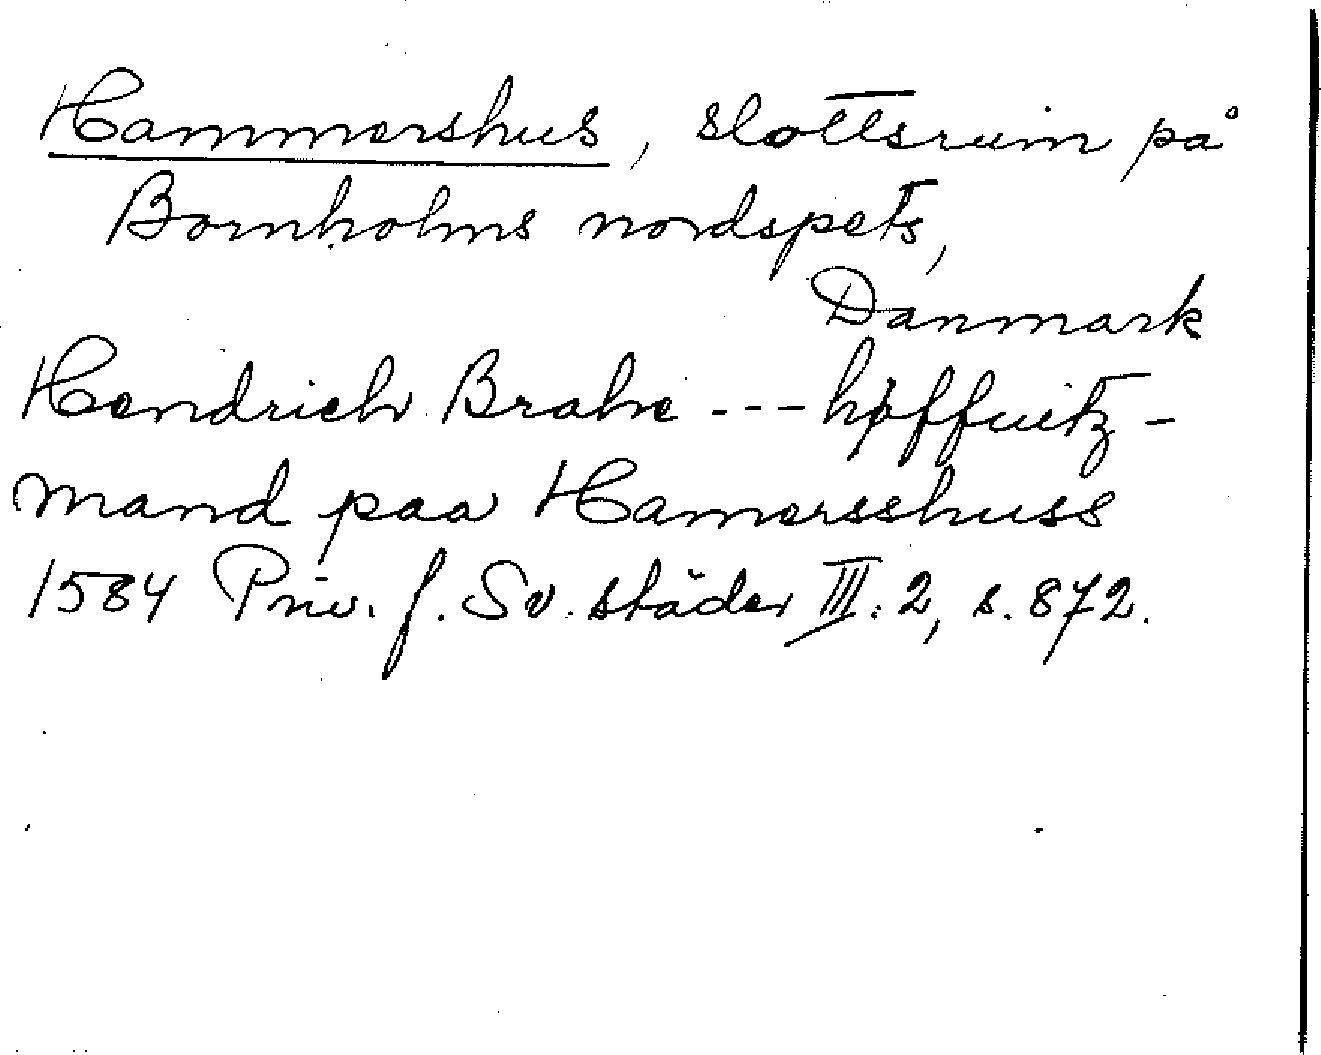 Hammershus, slottsruin på
Bornholms nordspets,
Danmark
Hendrich Brahe --- høffuitz-
mand paa Hamersshuss
1584 Priv. f. Sv. städer III: 2, s. 872.